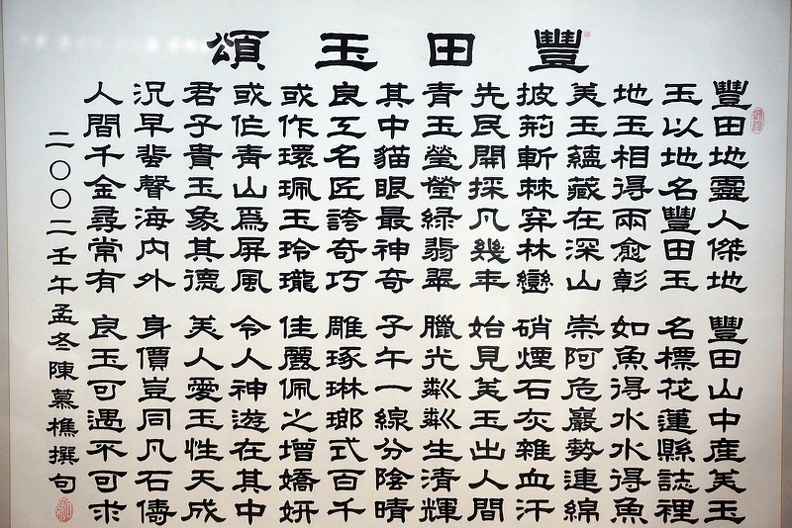 豐田玉頌
豐田地靈人傑地 豐田山中產美玉
玉以地名豐田玉 名標花蓮縣誌裡
地玉相得兩愈彰 如魚得水水得魚
美玉蘊藏在深山 崇阿危巖勢連綿
披荊斬棘穿林巒 硝煙石灰雜血汗
先民開採凡幾年 始見美玉出人間
青玉瑩瑩綠翡翠 臘光粼粼生清輝
其中貓眼最神奇 子午一線分陰晴
良工名匠誇奇巧 雕琢琳瑯式百千
或作環珮玉玲瓏 佳麗佩之增嬌妍
或作青山爲屏風 令人神遊在其中
君子貴玉象其德 美人愛玉性天成
況早蜚聲海內外 身價豈同凡石儔
人間千金尋常有 良玉可遇不可求
二〇〇二壬午孟冬陳慕樵撰句